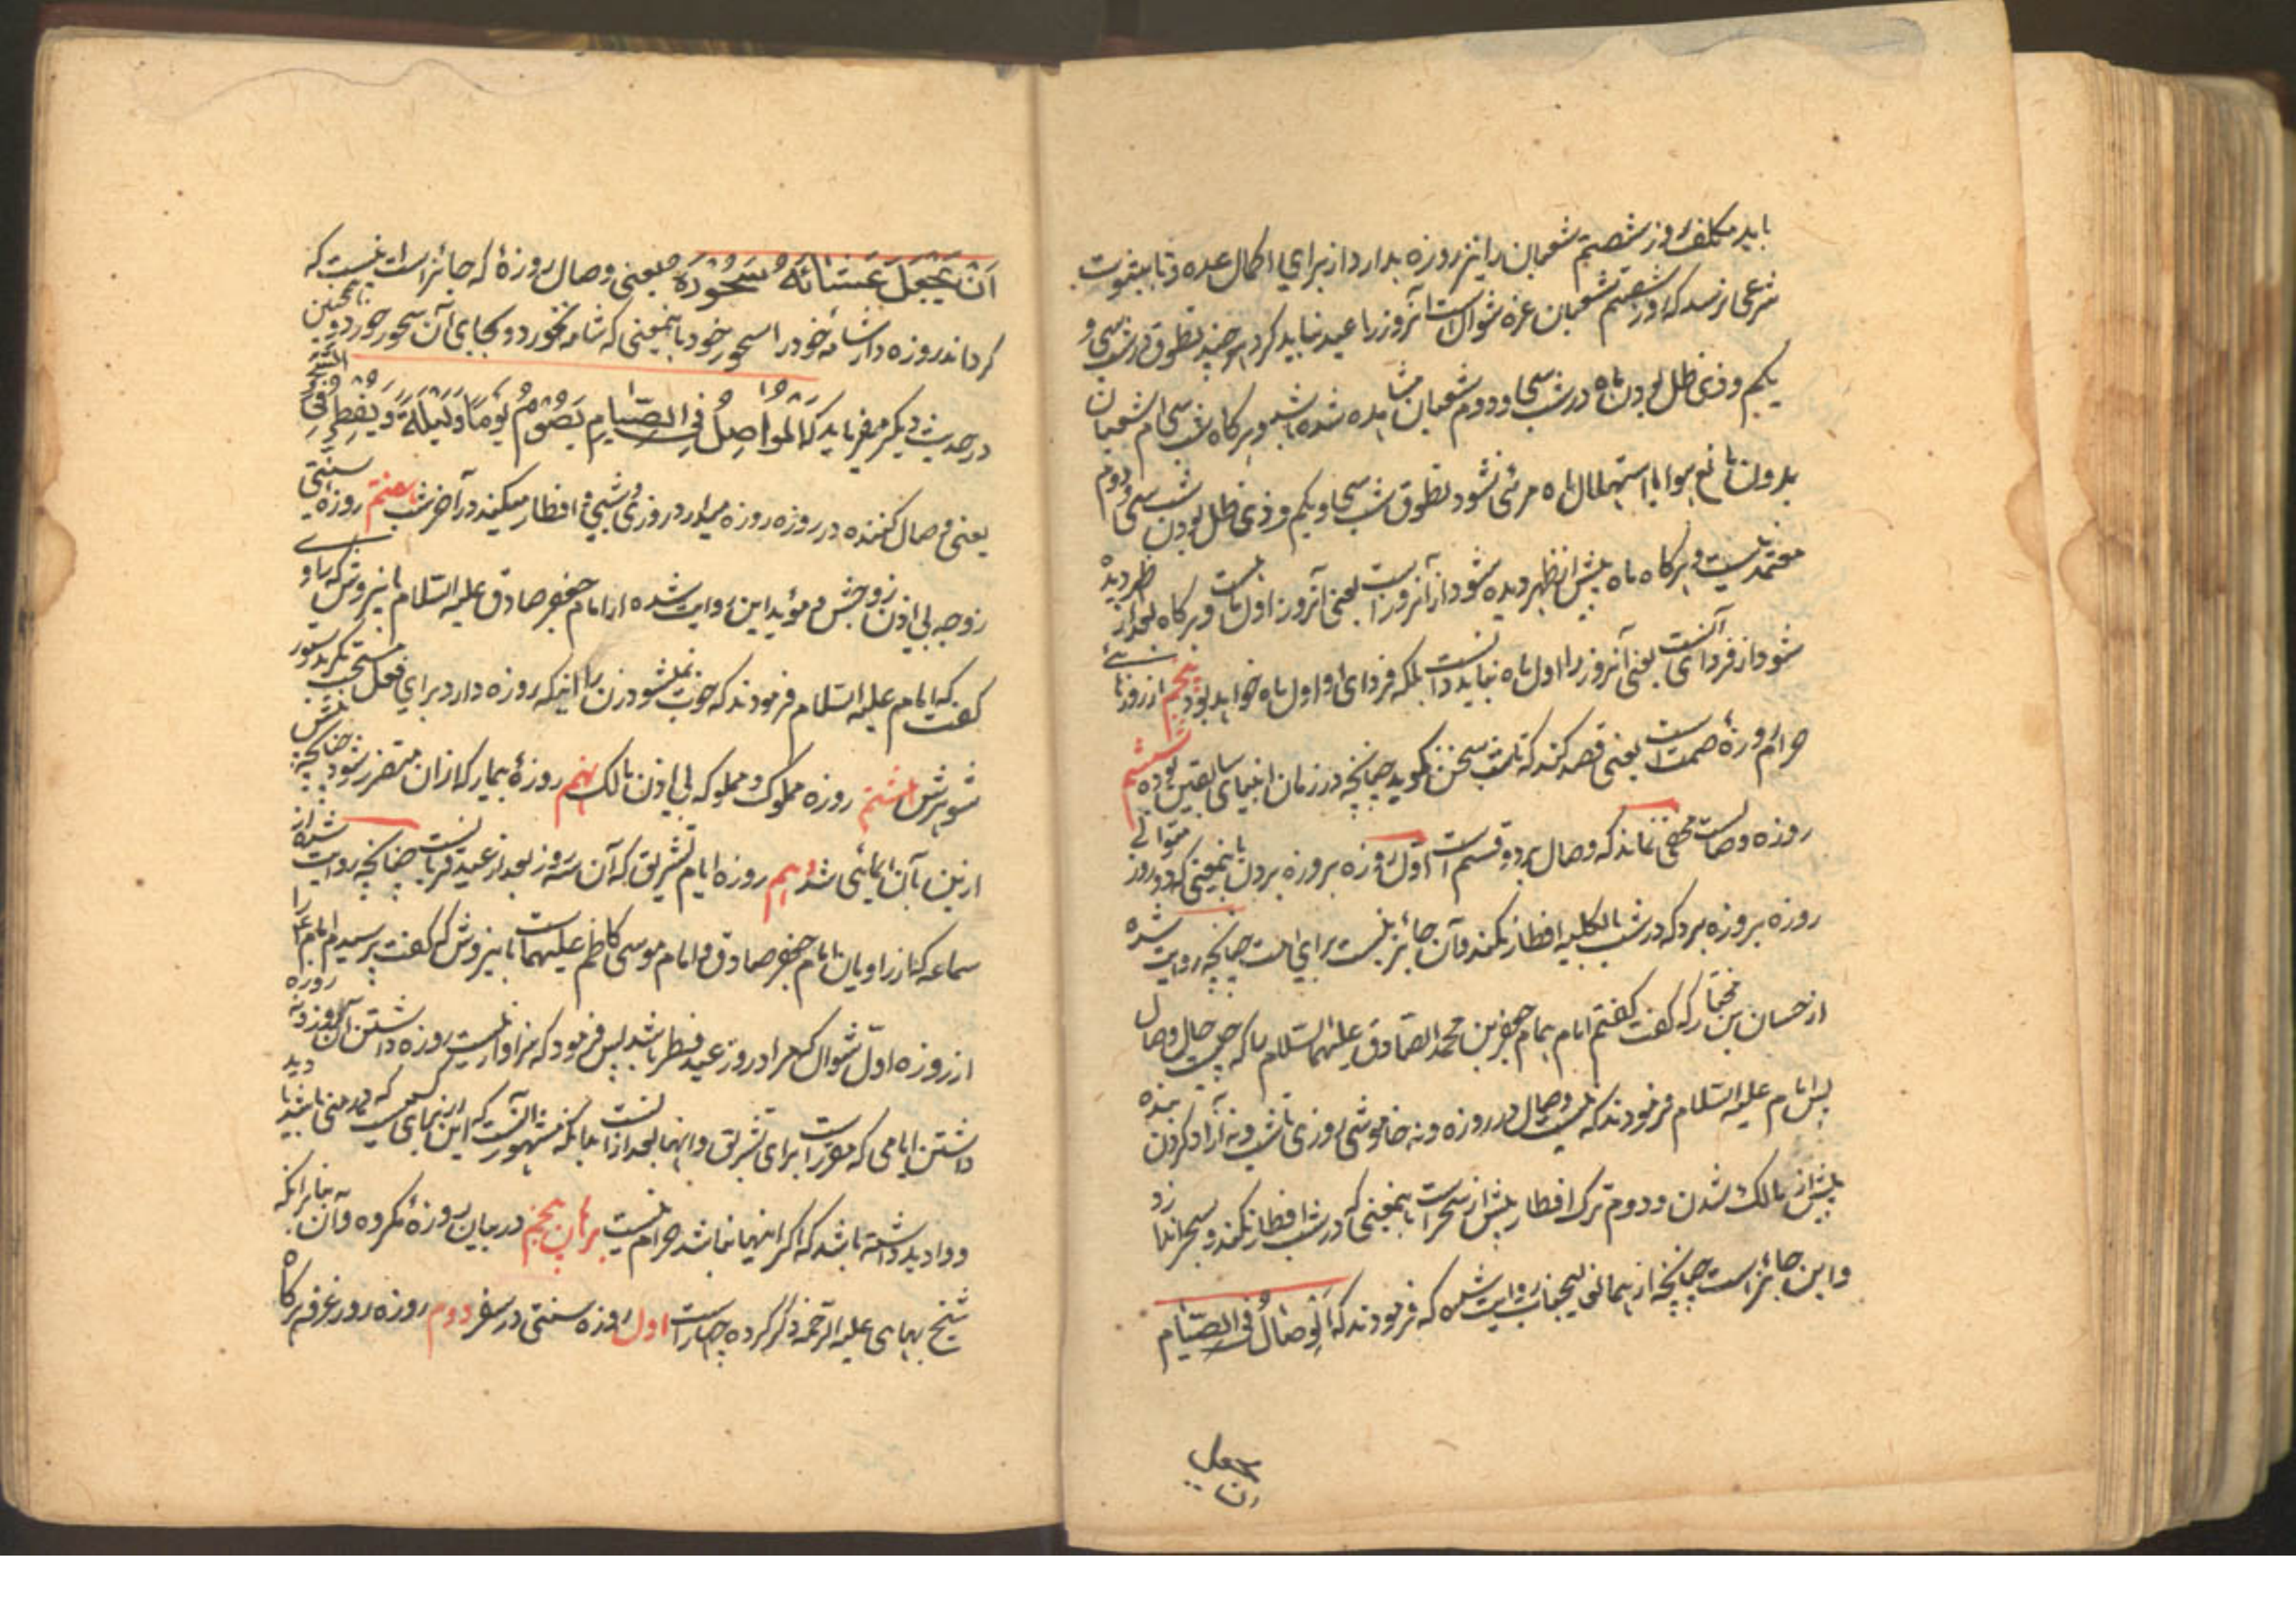 باید مکلف روز شصتم شعبان را نیز روزه بدارد از برای اکمال عده و تا بثبوت
شرعی نرسد که روز شصتم شعبان غره شوال است آنروز را عید نباید کرد هر چند تطوق در شب سی و
یکم و ذی ظل بودن ماه در شب سی و دوم شعبان مشاهده شده باشد و هرگاه شب سی ام شعبان
بدون مانع هوا با استهلال ماه مرئی نشود تطوق شب سی و یکم و ذی ظل بودن شب سی و دوم
معتمد نیست و هرگاه ماه پیش از ظهر دیده شود از آنروز است یعنی آنروز اول ماه است و هرگاه بعد از ظهر دیده
شود از فردای آنست یعنی آنروز را اول ماه نباید دانست بلکه فردای او اول ماه خواهد بود پنجم از روزهای
حرام روزهٔ صمت است یعنی قصد کند که تا شب سخن نگوید چنانچه در زمان انبیای سابقین بوده ششم
روزه وصالست مخفی نماند که وصال بر دو قسم است اول روزه بروزه بردن باینمعنی که دو روز متوالی
روزه بروزه برد که در شب بالکلیه افطار نکند و آن جائز نیست برای امت چنانچه روایت شده
از حسان بن مختار که گفت گفتم امام همام جعفر بن محمد الصادق علیهما السلام را که چیست حال وصال
پس امام علیه السلام فرمودند که نیست وصال در روزه و نه خاموشی روزی تا شب و نه آزاد کردن بنده
پیش از مالک شدن و دوم ترک افطار پیش از سحر است باینمعنی که در شب افطار نکند و سحر اندازد
و این جائز است چنانچه از همانجناب روایت شده که فرمودند که الوصال فی الصیام
ان یجعل
ان یجعل عشائه سحوره یعنی وصال روزهٔ که جائز است اینست که
گرداند روزه دار شام خود را سحور خود باینمعنی که شام نخورد و بجای آن سحور خورد و همچنین
در حدیث دیگر میفرماید که المواصل فی الصیام یصوم یوما و لیلة و یفطر فی السحر
یعنی وصال کننده در روزه روزه میدارد روزی و شبی و افطار میکند در آخر شب هفتم روزه سنتی
زوجه بی اذن زوجش و مؤید این روایت شده از امام جعفر صادق علیه السلام باینروش که راوی
گفت که امام علیه السلام فرمودند که خوب نمیشود زن را اینکه روزه دارد برای فعل مستحب مگر بدستور
شوهرش هشتم روزه مملوک و مملوکه بی اذن مالک نهم روزهٔ بیمار که از آن متضرر شود چنانچه پیش
ازین بآن ایمائی شد دهم روزه ایام تشریق که آن سه روز بعد از عید قربانست چنانچه روایت شده از
سماعه که از راویان امام جعفر صادق و امام موسی کاظم علیهما است باینروش که گفت پرسیدم امام ع را
از روزه اول شوال که مراد روز عید فطر باشد پس فرمود که سزاوار نیست روزه داشتن آن روز و نه روزه
داشتن ایامی که مقرر است برای تشریق و اینها بعد از آنست که مشهور آنست که این برای کسیست که در منی باشد یا دید
و وادید داشته باشد که اگر اینها نباشد حرام نیست برهان پنجم در بیان روزهٔ مکروه و آن بنابر آنکه
شیخ بهای علیه الرحمه ذکر کرده چهار است اول روزه سنتی در سفر دوم روزه روز عرفه هرگاه